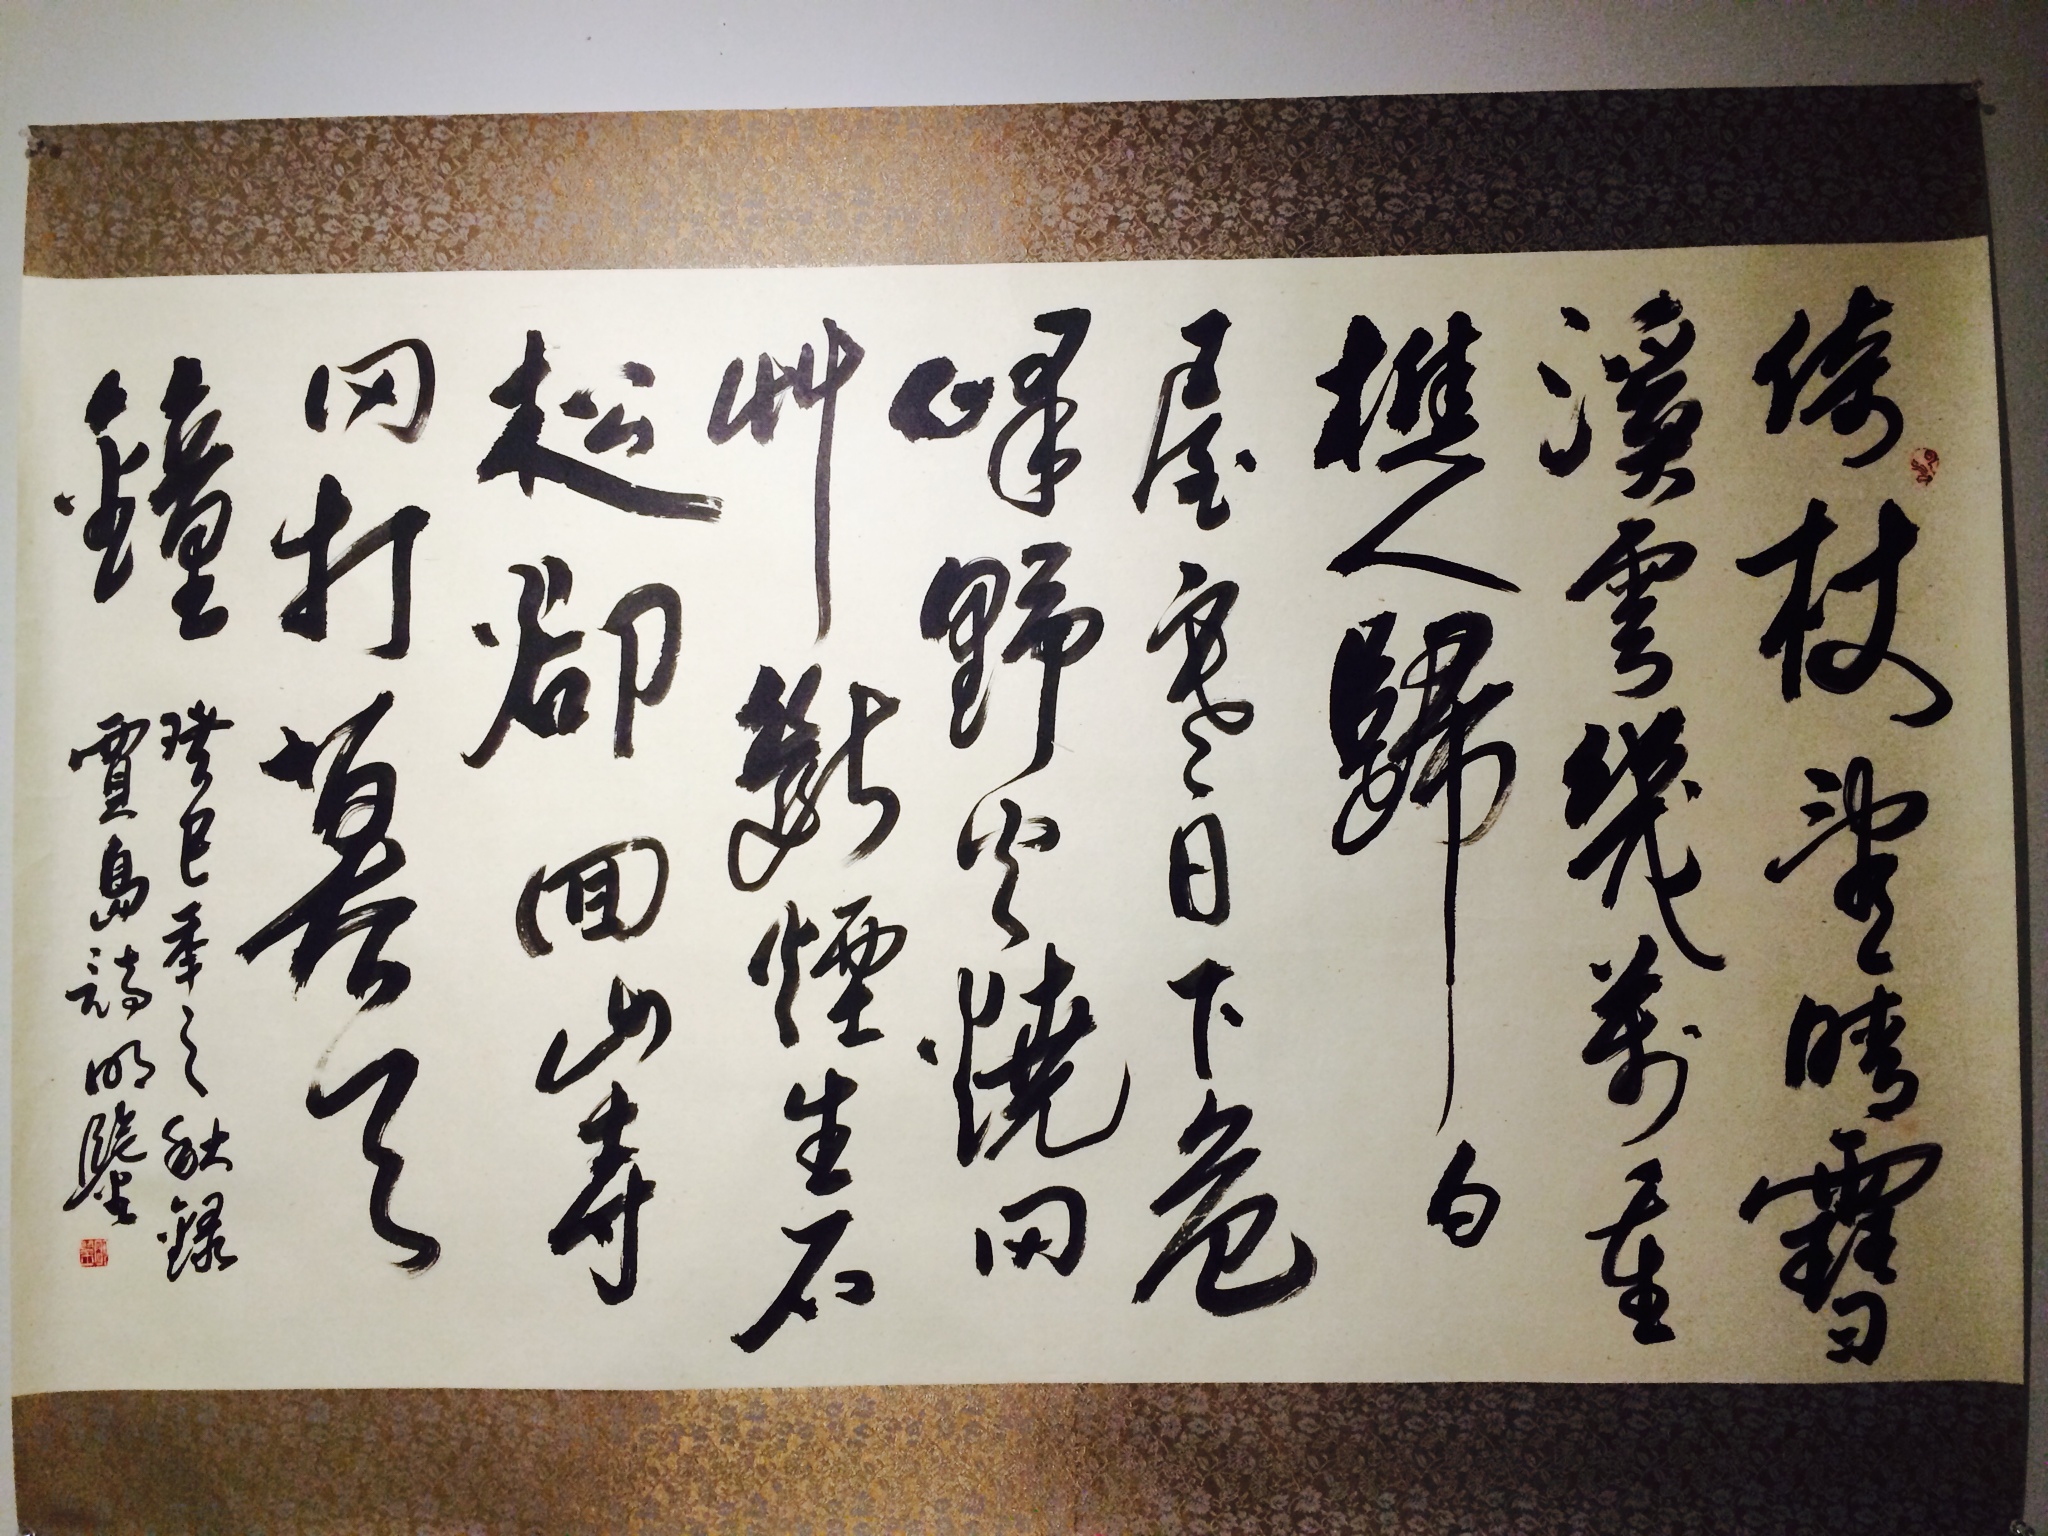 倚杖望晴雪
溪雲幾萬重
樵人歸白
屋寒日下危
峰野火燒岡
艸斷煙生石
松卻回山寺
聞打暮天
鐘
癸巳年之秋錄
賈島詩明鑒